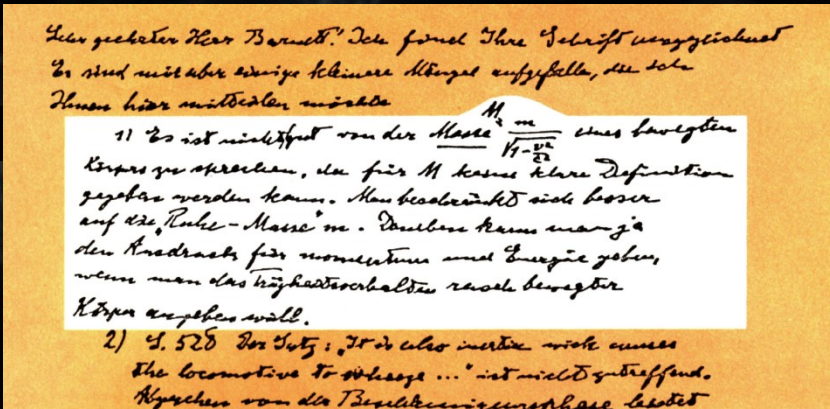 Sehr geehrter Herr Barnett! Ich finde Ihre Schrift ausgezeichnet
Es sind mir aber einige kleinere Mängel aufgefallen, die ich
Ihnen hier mitteilen möchte
1) Es ist nicht gut von der Masse M = m/√(1-v²/c²) eines bewegten
Körpers zu sprechen, da für M keine klare Definition
gegeben werden kann. Man beschränkt sich besser
auf die „Ruhe-Masse" m. Daneben kann man ja
den Ausdruck für momentum und Energie geben,
wenn man das Trägheitsverhalten rasch bewegter
Körper angeben will.
2) S. 528 Der Satz: „It is also inertia wich causes
the locomotive to wheeze ..." ist nicht zutreffend.
Abgesehen von der Beschleunigungsphase leistet